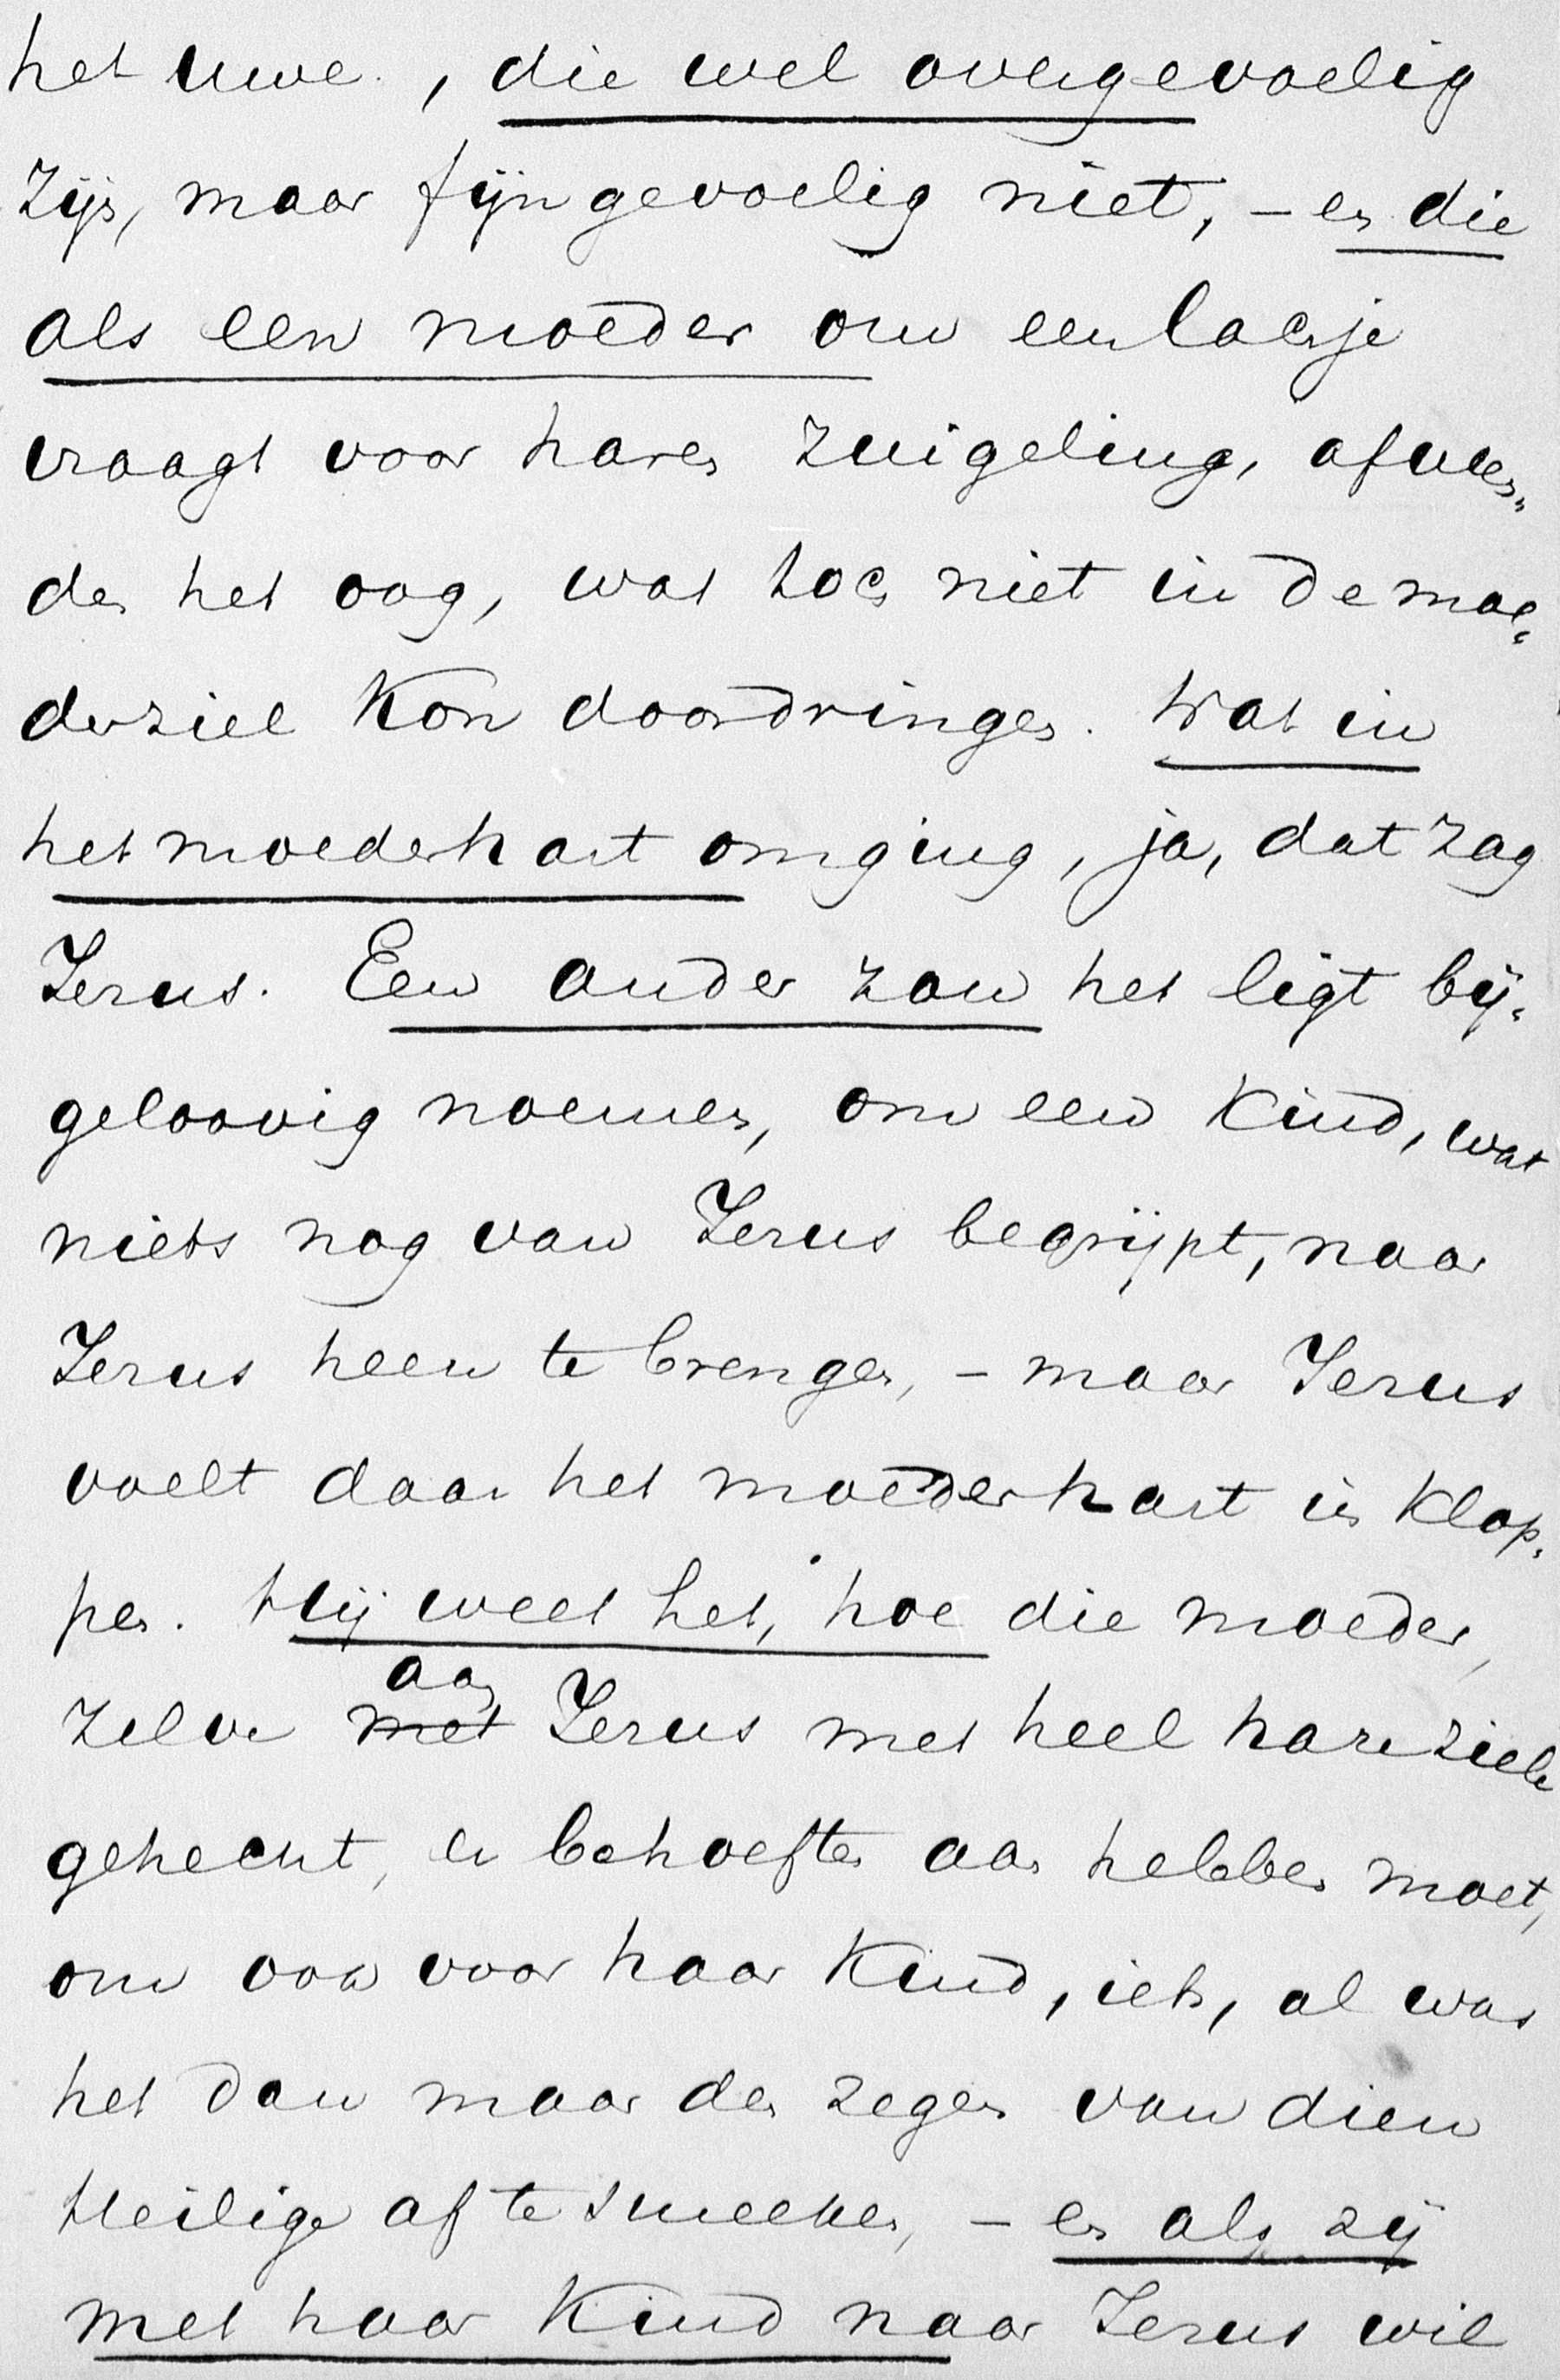 het uwe, die wel overgevoelig
zijn, maar fijngevoelig niet, – en die
als een moeder om een lachje
vraagt voor haren zuigeling, afwen„
den het oog, wat toch niet in de moe„
derziel kon doordringen. Wat in
het moederhart omging, ja, dat zag
Jezus. Een ander zou het ligt bij„
geloovig noemen, om een kind, wat
niets nog van Jezus begrijpt, naar
Jezus heen te brengen, – maar Jezus
voelt daar het moederhart in klop„
pen. Hij weet het, hoe die moeder,
zelve aan met Jezus met heel hare ziele
gehecht, er behoefte aan hebben moet,
om ook voor haar kind, iets, al was
het dan maar den zegen van dien
Heilige af te smeeken, – en als zij
met haar kind naar Jezus wil